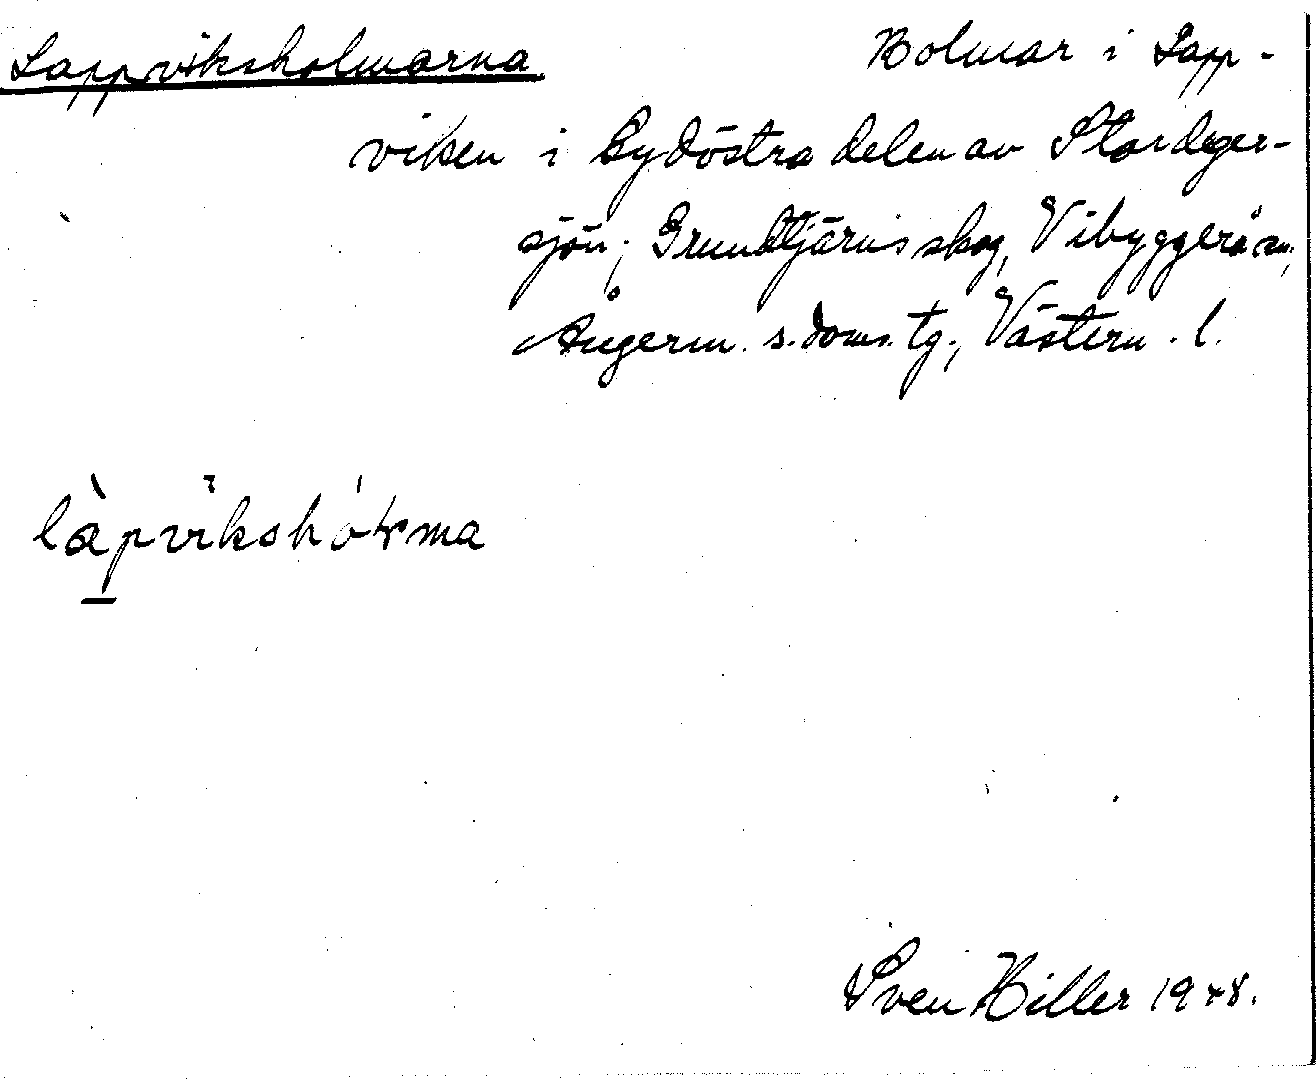 Lappviksholmarna Holmar i Lapp-
viken i sydöstra delen av Stordeger-
sjön; Grundtjärns skog, Vibyggerå sn,
Ångerm. s. doms. tg., Västern. l.
làpvikshóɫma
Sven Hiller 1948.